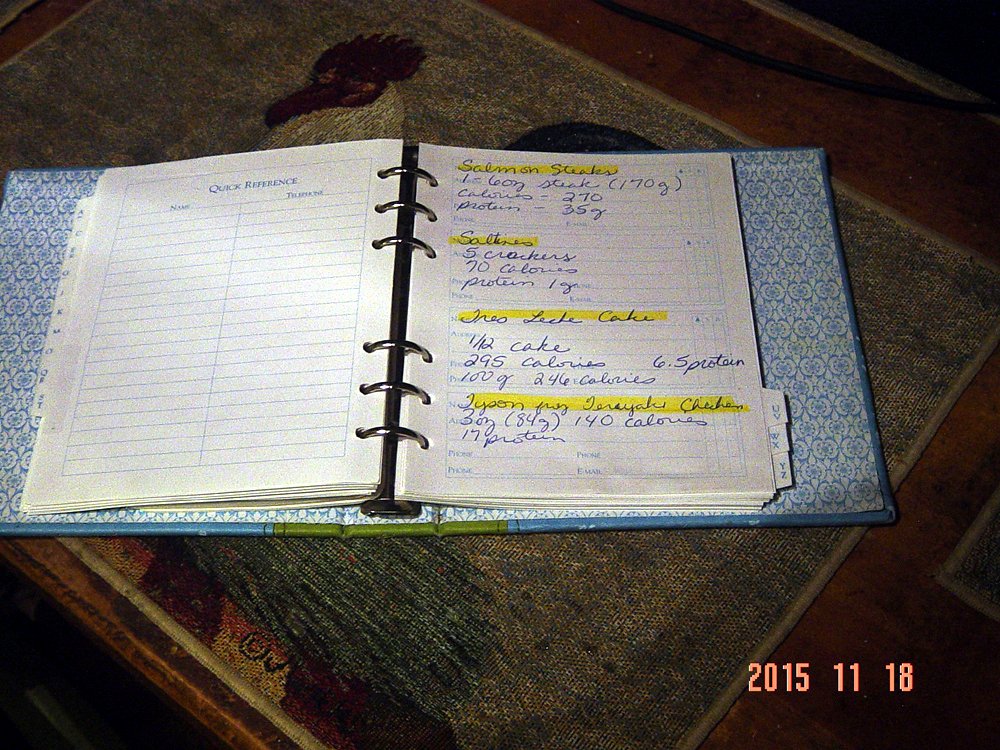 QUICK REFERENCE
NAME TELEPHONE
Salmon Steaks
1 - 6oz steak (170g)
calories - 270
protein - 35g
PHONE E-MAIL
Saltines
5 crackers
70 calories
protein 1g
PHONE E-MAIL
Tres Leche Cake
1/12 cake
295 calories 6.5 protein
100g 246 calories
Tyson Teriyaki Chicken
3oz (84g) 140 calories
17 protein
PHONE PHONE
PHONE E-MAIL
UV
WX
YZ
2015 11 18